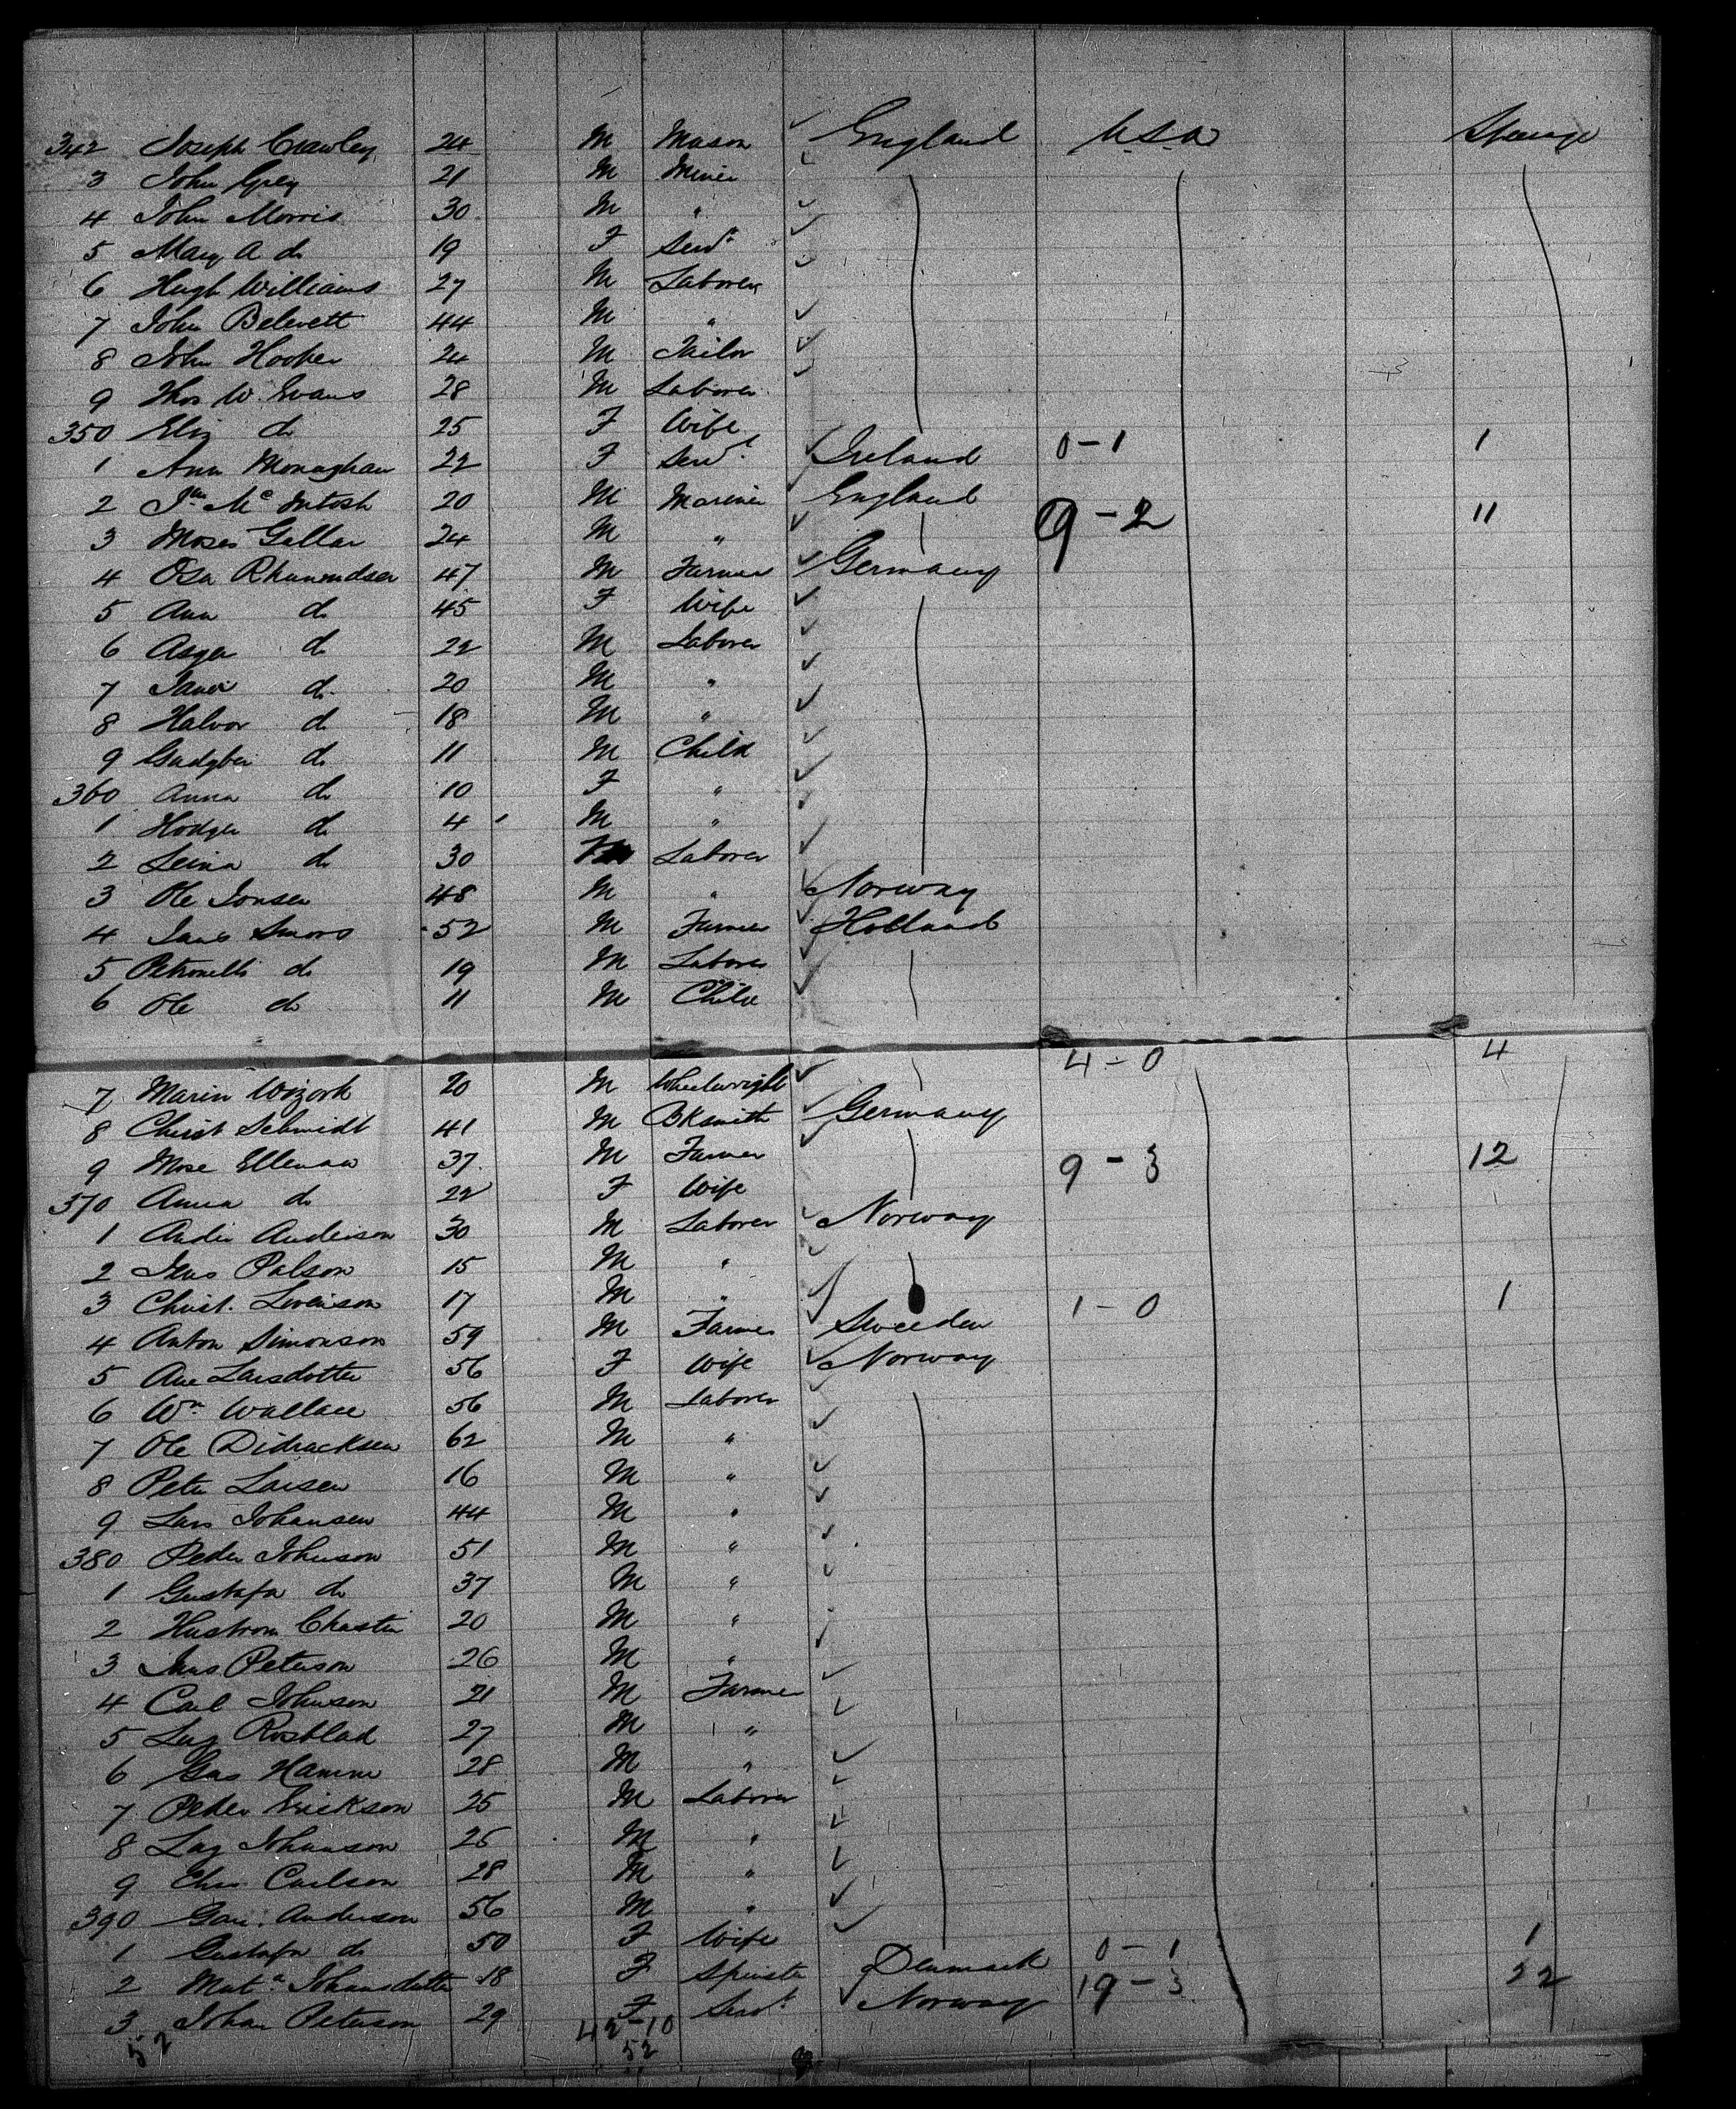 342 Joseph Crawley 24 M Mason England U.S.A Steerage
3 John Grey 21 M Miner
4 John Morris 30 M "
5 Mary A do 19 F Servt
6 Hugh Williams 27 M Laborer
7 John Belevett 44 M "
8 John Hooker 24 M Tailor
9 Thos W. Evans 28 M Laborer
350 Eliz do 25 F Wife
1 Ann Monaghan 22 F Servt Ireland 0-1 1
2 Jno McIntosh 20 M Mariner England
3 Moses Gellar 24 M " 9-2 11
4 Osa Rhumendsen 47 M Farmer Germany
5 Ann do 45 F Wife
6 Asger do 22 M Laborer
7 do 20 M "
8 Halvor do 18 M "
9 do 11 M Child
360 Anna do 10 F "
1 do 4 M "
2 Leina do 30 Laborer
3 Ole Jonsen 48 M " Norway
4 52 M Farmer Holland
5 Petronelli do 19 M Laborer
6 Ole do 11 M Child
7 Marin 20 M Wheelwright 4-0 4
8 Christ Schmidt 41 M Bksmith Germany
9 Mose Ellenaw 37 M Farmer 9-3 12
370 Anna do 22 F Wife
1 Anderson 30 M Laborer Norway
2 Jens Palson 15 M "
3 Christ. 17 M " 1-0 1
4 Anton Simonson 59 M Farmer Sweeden
5 Ane Larsdotter 56 F Wife Norway
6 Wm Wallace 56 M Laborer
7 Ole Didracksen 62 M "
8 Peter Larsen 16 M "
9 Lars Johansen 44 M "
380 Peder Johnson 51 M "
1 Gustafa do 37 M "
2 20 M "
3 Jens Peterson 26 M "
4 Carl Johnson 21 M Farmer
5 Rosblad 27 M "
6 Gus Hamme 28 M "
7 Peder Erickson 25 M Laborer
8 Johanson 25 M "
9 Chr. Carlson 28 M "
390 Anderson 56 M "
1 Gustafa do 50 F Wife
2 Johansdotter 18 F Spinster Denmark 0-1 1
3 Johan Peterson 29 F Servt Norway 19-3 22
52 42-10
52